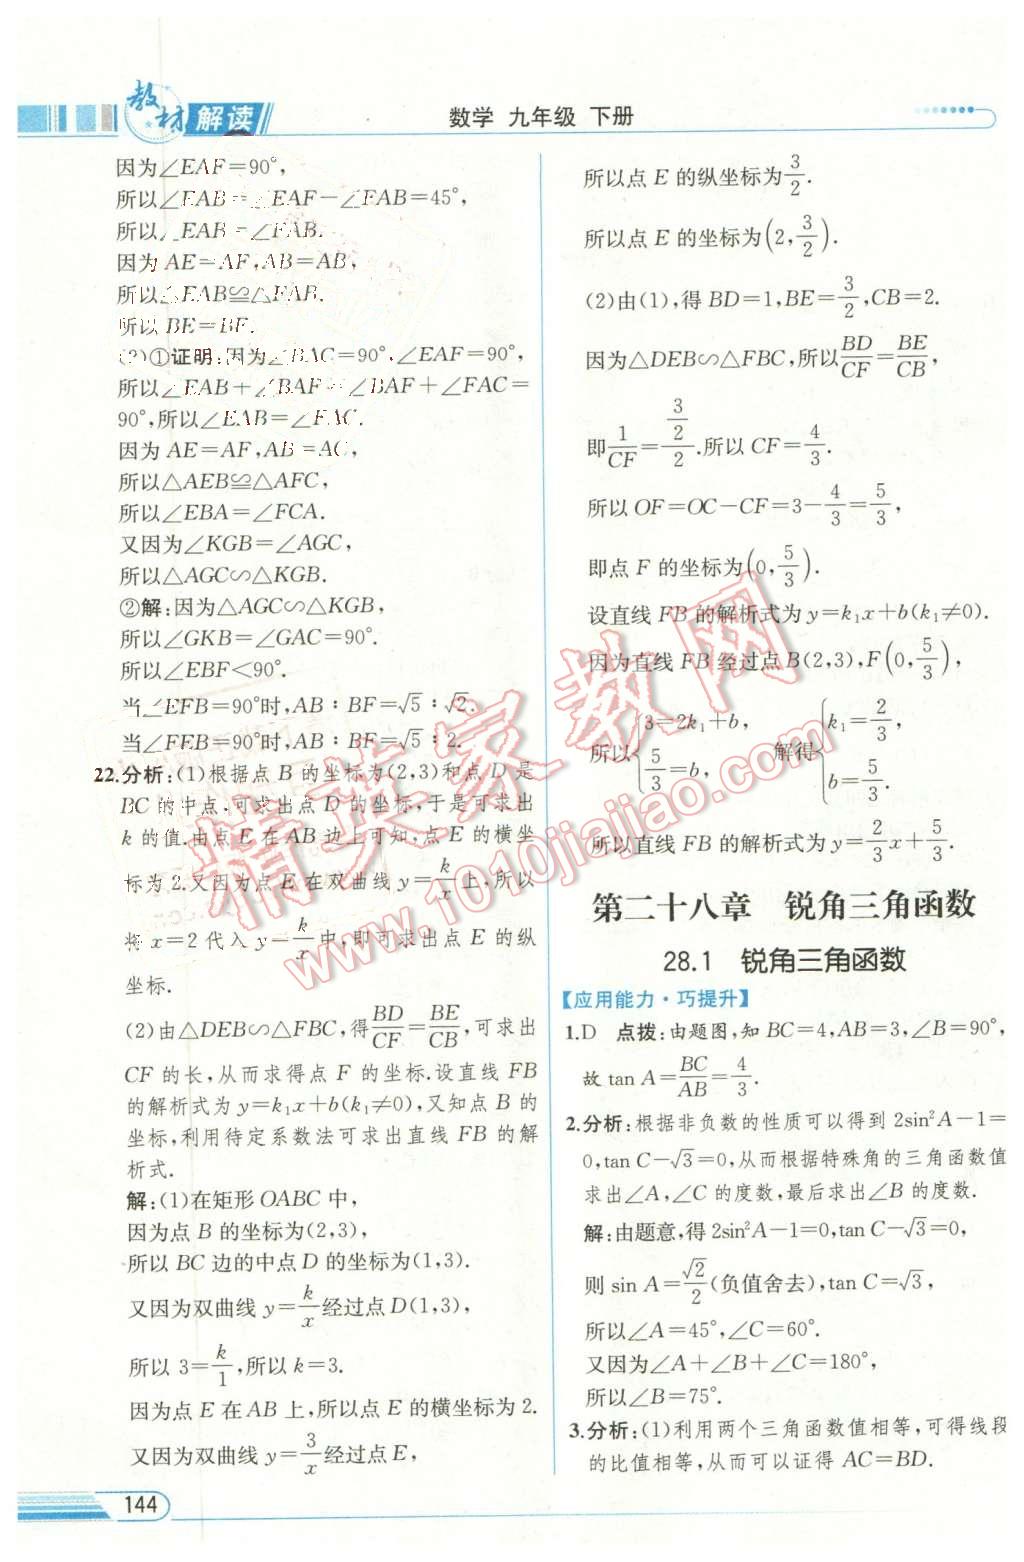 教材解读
数学 九年级 下册
因为∠EAF=90°,
所以∠EAB=∠EAF-∠FAB=45°,
所以∠EAB=∠FAB.
因为 AE=AF,AB=AB,
所以△EAB≌△FAB.
所以 BE=BF.
(2)①证明:因为∠BAC=90°,∠EAF=90°,
所以∠EAB+∠BAF=∠BAF+∠FAC=
90°,所以∠EAB=∠FAC.
因为 AE=AF,AB=AC,
所以△AEB≌△AFC,
所以∠EBA=∠FCA.
又因为∠KGB=∠AGC,
所以△AGC∽△KGB.
②解:因为△AGC∽△KGB,
所以∠GKB=∠GAC=90°.
所以∠EBF<90°.
当∠EFB=90°时,AB∶BF=√5∶√2.
当∠FEB=90°时,AB∶BF=√5∶2.
22.分析:(1)根据点 B 的坐标为(2,3)和点 D 是
BC 的中点,可求出点 D 的坐标,于是可求出
k 的值.由点 E 在 AB 边上可知,点 E 的横坐
标为 2.又因为点 E 在双曲线 y=k/x 上,所以
将 x=2 代入 y=k/x 中,即可求出点 E 的纵
坐标.
(2)由△DEB∽△FBC,得BD/CF=BE/CB,可求出
CF 的长,从而求得点 F 的坐标.设直线 FB
的解析式为 y=k₁x+b(k₁≠0),又知点 B 的
坐标,利用待定系数法可求出直线 FB 的解
析式.
解:(1)在矩形 OABC 中,
因为点 B 的坐标为(2,3),
所以 BC 边的中点 D 的坐标为(1,3).
又因为双曲线 y=k/x经过点 D(1,3),
所以 3=k/1,所以 k=3.
因为点 E 在 AB 上,所以点 E 的横坐标为 2.
又因为双曲线 y=3/x经过点 E,
所以点 E 的纵坐标为3/2.
所以点 E 的坐标为(2,3/2).
(2)由(1),得 BD=1,BE=3/2,CB=2.
因为△DEB∽△FBC,所以BD/CF=BE/CB,
即1/CF=(3/2)/2.所以 CF=4/3.
所以 OF=OC-CF=3-4/3=5/3,
即点 F 的坐标为(0,5/3).
设直线 FB 的解析式为 y=k₁x+b(k₁≠0).
因为直线 FB 经过点 B(2,3),F(0,5/3),
所以{3=2k₁+b, 5/3=b, 解得{k₁=2/3, b=5/3.
所以直线 FB 的解析式为 y=2/3x+5/3.
第二十八章 锐角三角函数
28.1 锐角三角函数
【应用能力·巧提升】
1.D 点拨:由题图,知 BC=4,AB=3,∠B=90°,
故 tan A=BC/AB=4/3.
2.分析:根据非负数的性质可以得到 2sin²A-1=
0,tan C-√3=0,从而根据特殊角的三角函数值
求出∠A,∠C 的度数,最后求出∠B 的度数.
解:由题意,得 2sin²A-1=0,tan C-√3=0,
则 sin A=√2/2(负值舍去),tan C=√3,
所以∠A=45°,∠C=60°.
又因为∠A+∠B+∠C=180°,
所以∠B=75°.
3.分析:(1)利用两个三角函数值相等,可得线段
的比值相等,从而可以证得 AC=BD.
144
精英家教网
www.1010jiajiao.com